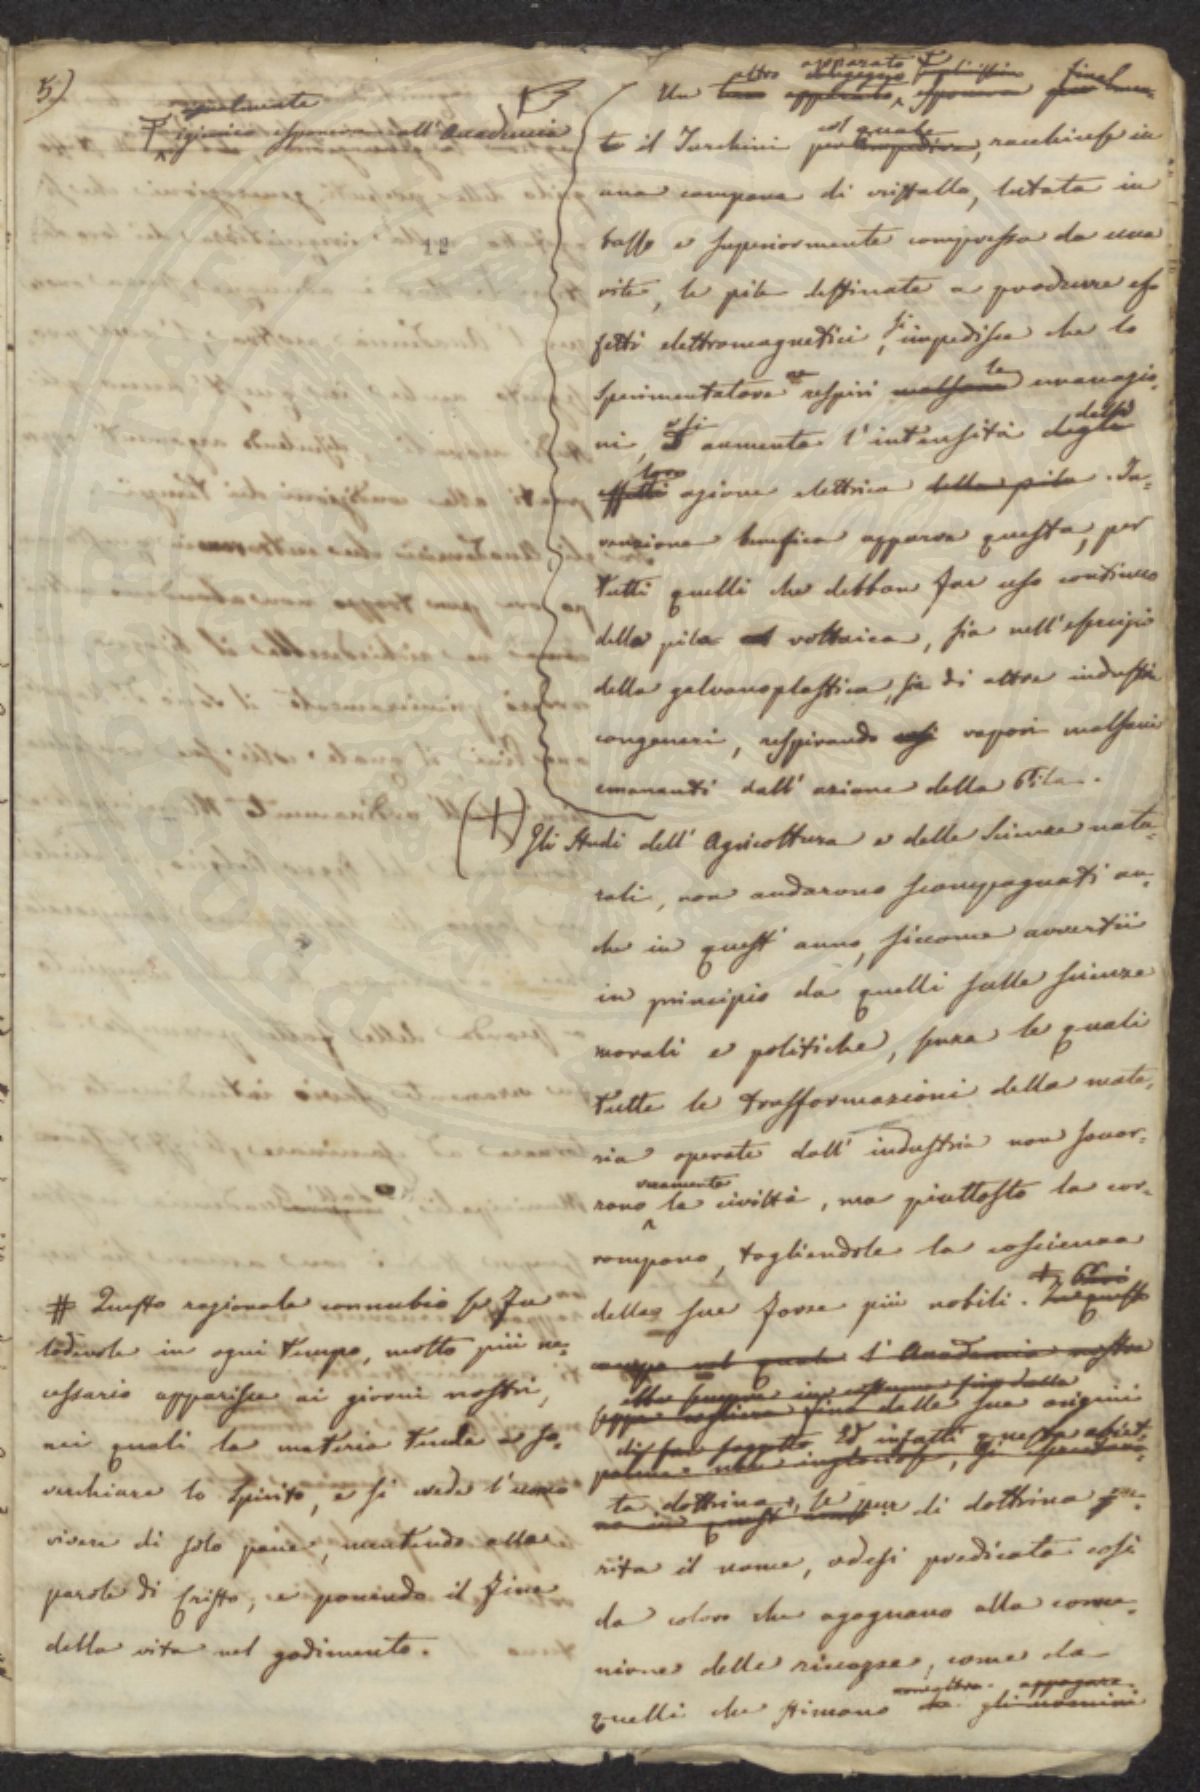 5.)
igienico esponeva all'Accademia
12
Un altro apparato
te il Turchini col quale, racchiuse in
una campana di cristallo, lutata in
basso e superiormente compressa da una
vite, le pile destinate a produrre ef
fetti elettromagnetici, si impedisce che lo
sperimentatore ne respiri le emanazio-
ni, e si aumenta l'intensità della
loro azione elettrica della pila. In-
venzione benefica apparve questa, per
tutti quelli che debbon far uso continuo
della pila voltaica, sia nell'esercizio
della galvanoplastica, sia di altre industrie
congeneri, respirando vapori malsani
emananti dall'azione della Pila.
(+) Gli studi dell'Agricoltura e delle Scienze natu-
rali, non andarono scompagnati an-
che in quest'anno, siccome avvertii
in principio da quelli sulle scienze
morali e politiche, senza le quali
tutte le trasformazioni della mate-
ria operate dall'industria non favor-
rono veramente la civiltà, ma piuttosto la cor-
rompono, togliendole la coscienza
delle sue forze più nobili. In questo
campo nel quale l'Accademia nostra
seppe cogliere fino dalle sue origini
palme non ingloriose, si
ta dottrina, se pur di dottrina me-
rita il nome, odesi predicata così
da coloro che agognano alla comu-
nione delle ricchezze, come da
quelli che stimano gli uomini
# Questo razionale connubio se fu
lodevole in ogni tempo, molto più ne-
cessario apparisce ai giorni nostri,
nei quali la materia tende a so-
verchiare lo spirito, e si crede l'uomo
vivere di solo pane, mentendo alla
parola di Cristo, e ponendo il fine
della vita nel godimento.